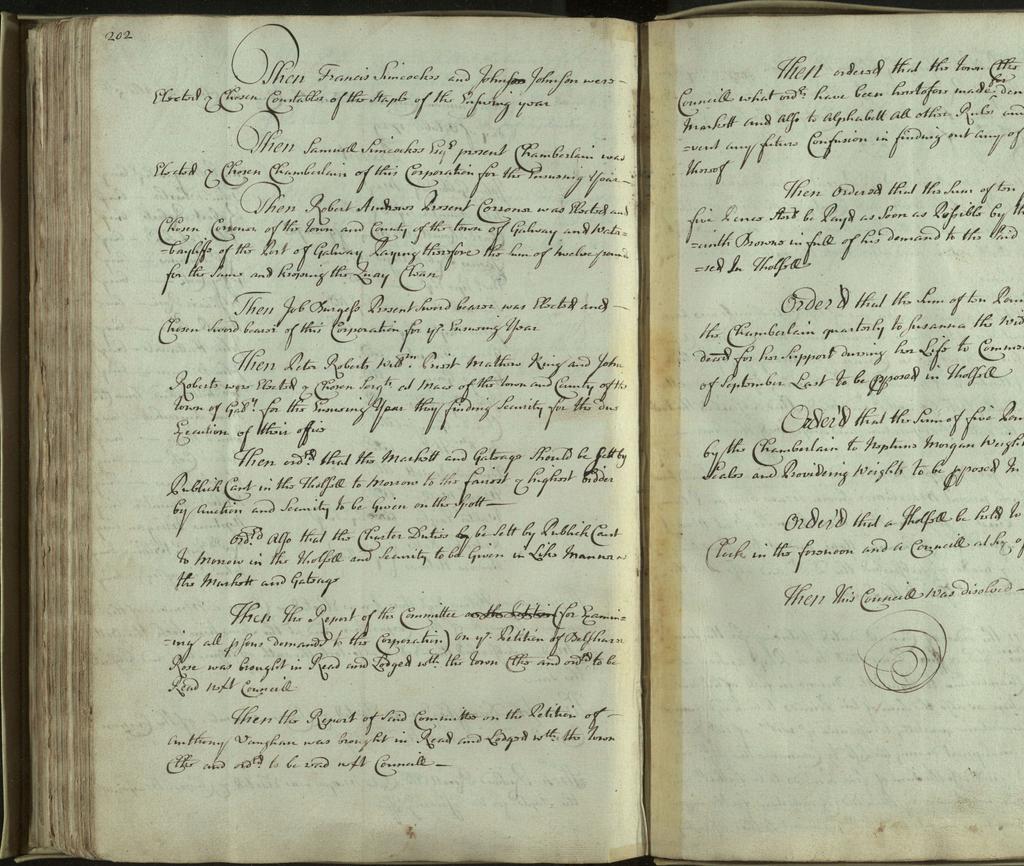 202
Then Francis Simcockes and John Johnson were
Elected & Chosen Constables of the Staple of the Ensuing year
Then Samuell Simcockes Esqr. present Chamberlain was
Elected & Chosen Chamberlain of this Corporation for the Ensueing Year
Then Robert Andrews Present Corronor was Elected and
Chosen Corronor of the Town and County of the town of Galway and Water=
=bayliffe of the Port of Galway Paying therefore the sum of twelve pound
for the Same and keeping the Quay Clean
Then Job Burgess Present Sword bearer was Elected and
Chosen Sword bearer of this Corporation for ye. Ensueing Year
Then Peter Roberts Willm. Mathew King and John
Roberts were Elected & Chosen Sergts. at Mace of the town and County of the
town of Galw. for the Ensueing Year they finding Security for the due
Execution of their office
Then ordrd. that the Markett and Gateage Should be Sett by
Publick Cant in the Tholsell to Morrow to the fairest & highest bidder
by Auction and Security to be Given on the Spott
ordrd Also that the Charter Duties be Sett by Publick Cant
to Morrow in the Tholsell and Security to be Given in Like Manner as
the Markett and Gateage
Then the Report of the Committee on the Petition (for Examin=
=ing all psons demands to the Corporation) on ye. Petition of
Rose was brought in Read and Lodged wth. the Town Clke and ordrd to be
Read next Councill
Then the Report of Said Committee on the Petition of
Anthony Vaughan was brought in Read and Lodged wth. the Town
Clke and ordrd. to be read next Councill
Then ordered that the Town Clke
for
Councill what ordrs. have been heretofore made
Markett and Also to Alphabett all other Rules and
=vent any future Confusion in finding out any of
thereof
Then Ordered that the Sum of ten
five Pence Ster be Payd as Soon as Possible by th
Browne in full of his demand to the Said
=sed In Tholsell
Order'd that the Sum of ten Poun
the Chamberlain quarterly to Susanna the Wid
deced for her Support during her Life to Comme
of September Last to be pposed in Tholsell
Order'd that the Sum of five Poun
by the Chamberlain to Neptune Morgan Weigh
Scales and Provideing Weights to be pposed In
Order'd that a Tholsell be held to
Clock in the forenoon and a Councill at Six of
Then This Councill was disolved